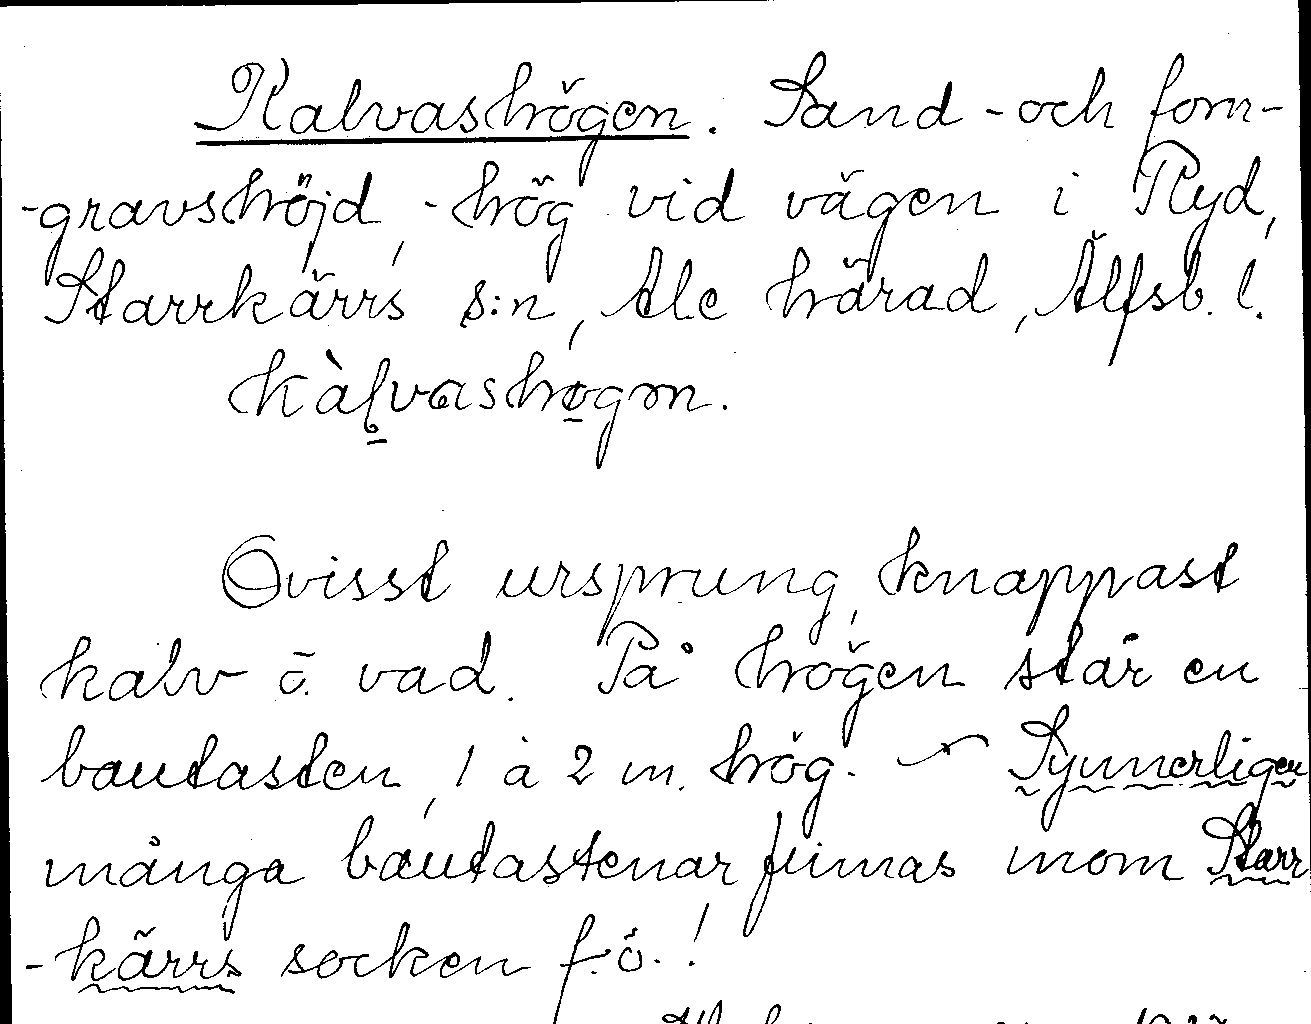 Kalvashögen. Sand- och forn-
-gravshöjd, -hög vid vägen i Ryd,
Starrkärrs s:n, Ale härad, Älfsb. l.
kàlvashøgon.
Ovisst ursprung, knappast
kalv ō. vad. På högen står en
bautasten, 1 à 2 m. hög. ~ Synnerligen
många bautastenar finnas inom Starr
-kärrs socken f.ö.!